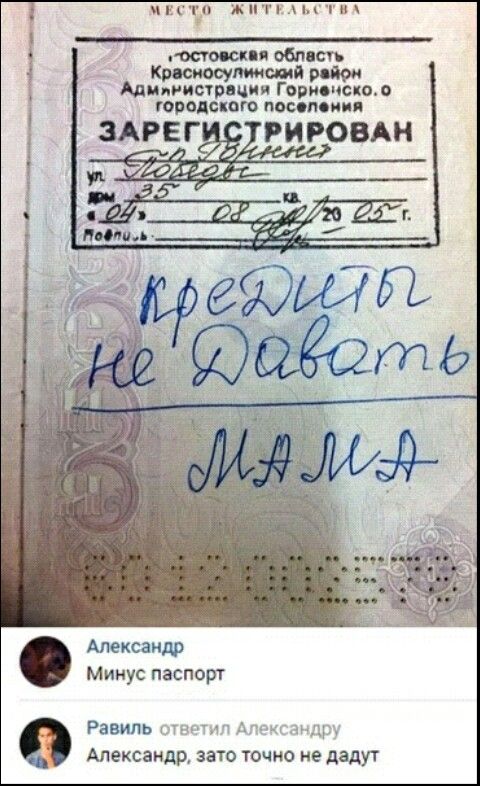 МЕСТО ЖИТЕЛЬСТВА
остовская область
Красносулинский район
Администрация Горненско.о
городского поселения
ЗАРЕГИСТРИРОВАН
п. Горный
ул. Победы
дом 35 кв.
« 04 » 08 20 05 г.
Подпись
кредиты
не давать
МАМА
Александр
Минус паспорт
Равиль ответил Александру
Александр, зато точно не дадут